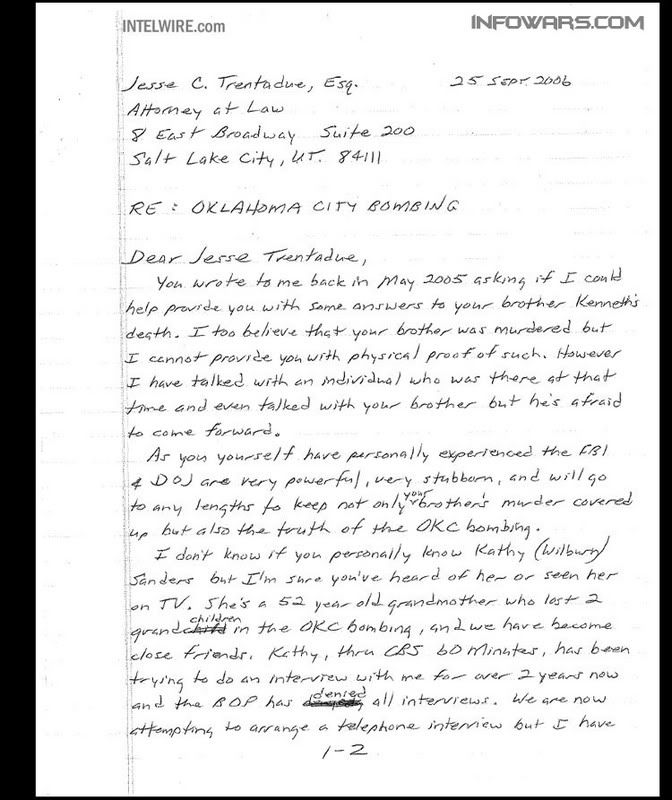 INTELWIRE.com
INFOWARS.COM
Jesse C. Trentadue, Esq.
25 Sept. 2006
Attorney at Law
8 East Broadway Suite 200
Salt Lake City, UT. 84111
RE: OKLAHOMA CITY BOMBING
Dear Jesse Trentadue,
You wrote to me back in May 2005 asking if I could
help provide you with some answers to your brother Kenneth's
death. I too believe that your brother was murdered but
I cannot provide you with physical proof of such. However
I have talked with an individual who was there at that
time and even talked with your brother but he's afraid
to come forward.
As you yourself have personally experienced the FBI
& DOJ are very powerful, very stubborn, and will go
to any lengths to keep not only your brother's murder covered
up but also the truth of the OKC bombing.
I don't know if you personally know Kathy (Wilburn)
Sanders but I'm sure you've heard of her or seen her
on TV. She's a 52 year old grandmother who lost 2
grandchildren in the OKC bombing, and we have become
close friends. Kathy, thru CBS 60 Minutes, has been
trying to do an interview with me for over 2 years now
and the BOP has denied all interviews. We are now
attempting to arrange a telephone interview but I have
1-2